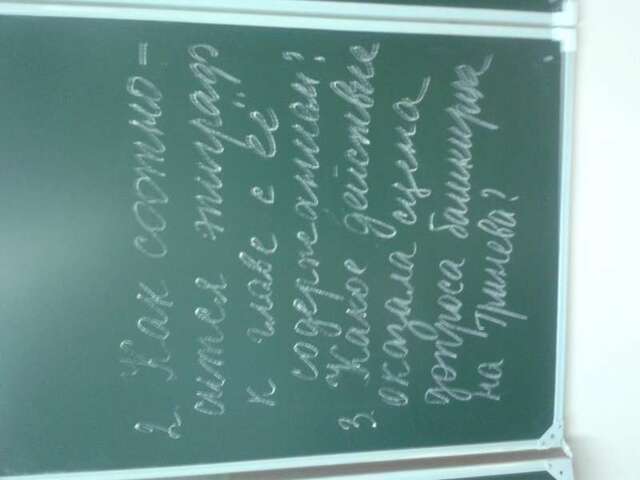 2. Как соотно-
сится эпиграф
к главе с её
содержанием?
3. Какое действие
оказала сцена
допроса башкирца
на Гринева?